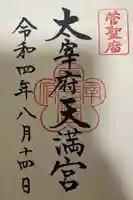 菅聖廟
太宰府天満宮
令和四年八月十四日